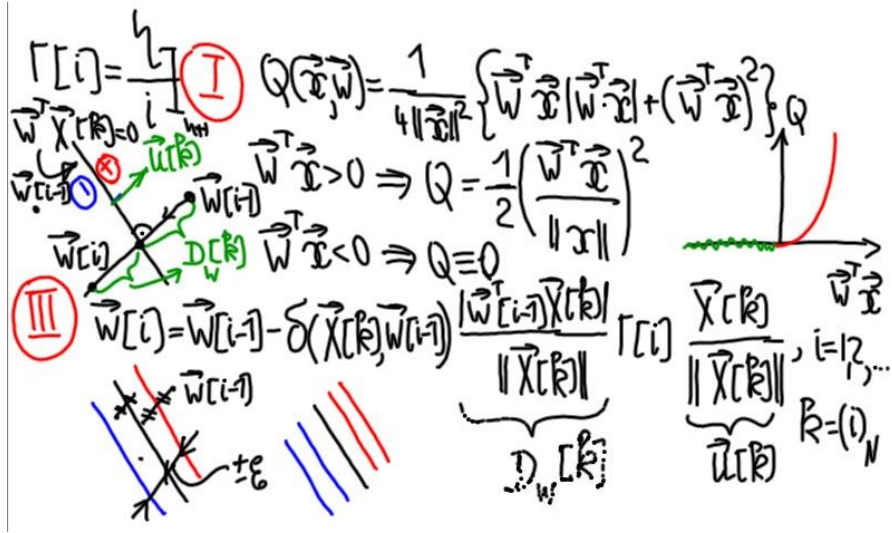 Γ[i] = η/i ]ₙ₊₁ Ⓘ Q(x⃗,w⃗) = 1/(4‖x⃗‖²) {w⃗ᵀx⃗|w⃗ᵀx⃗| + (w⃗ᵀx⃗)²}
Q
w⃗ᵀX⃗[k]=0
+ u⃗[k]
w⃗ᵀx⃗>0 ⇒ Q = 1/2 (w⃗ᵀx⃗/‖x‖)²
w⃗[i-1] - w⃗[i-1]
w⃗[i] D_w[k] w⃗ᵀx⃗<0 ⇒ Q≡0
w⃗ᵀx⃗
III w⃗[i] = w⃗[i-1] - δ(X⃗[k],w⃗[i-1]) |w⃗ᵀ[i-1]X⃗[k]|/‖X⃗[k]‖ Γ[i] X⃗[k]/‖X⃗[k]‖, i=1,2,...
w⃗[i-1]
k=(i)_N
±ε
D_w[k] u⃗[k]